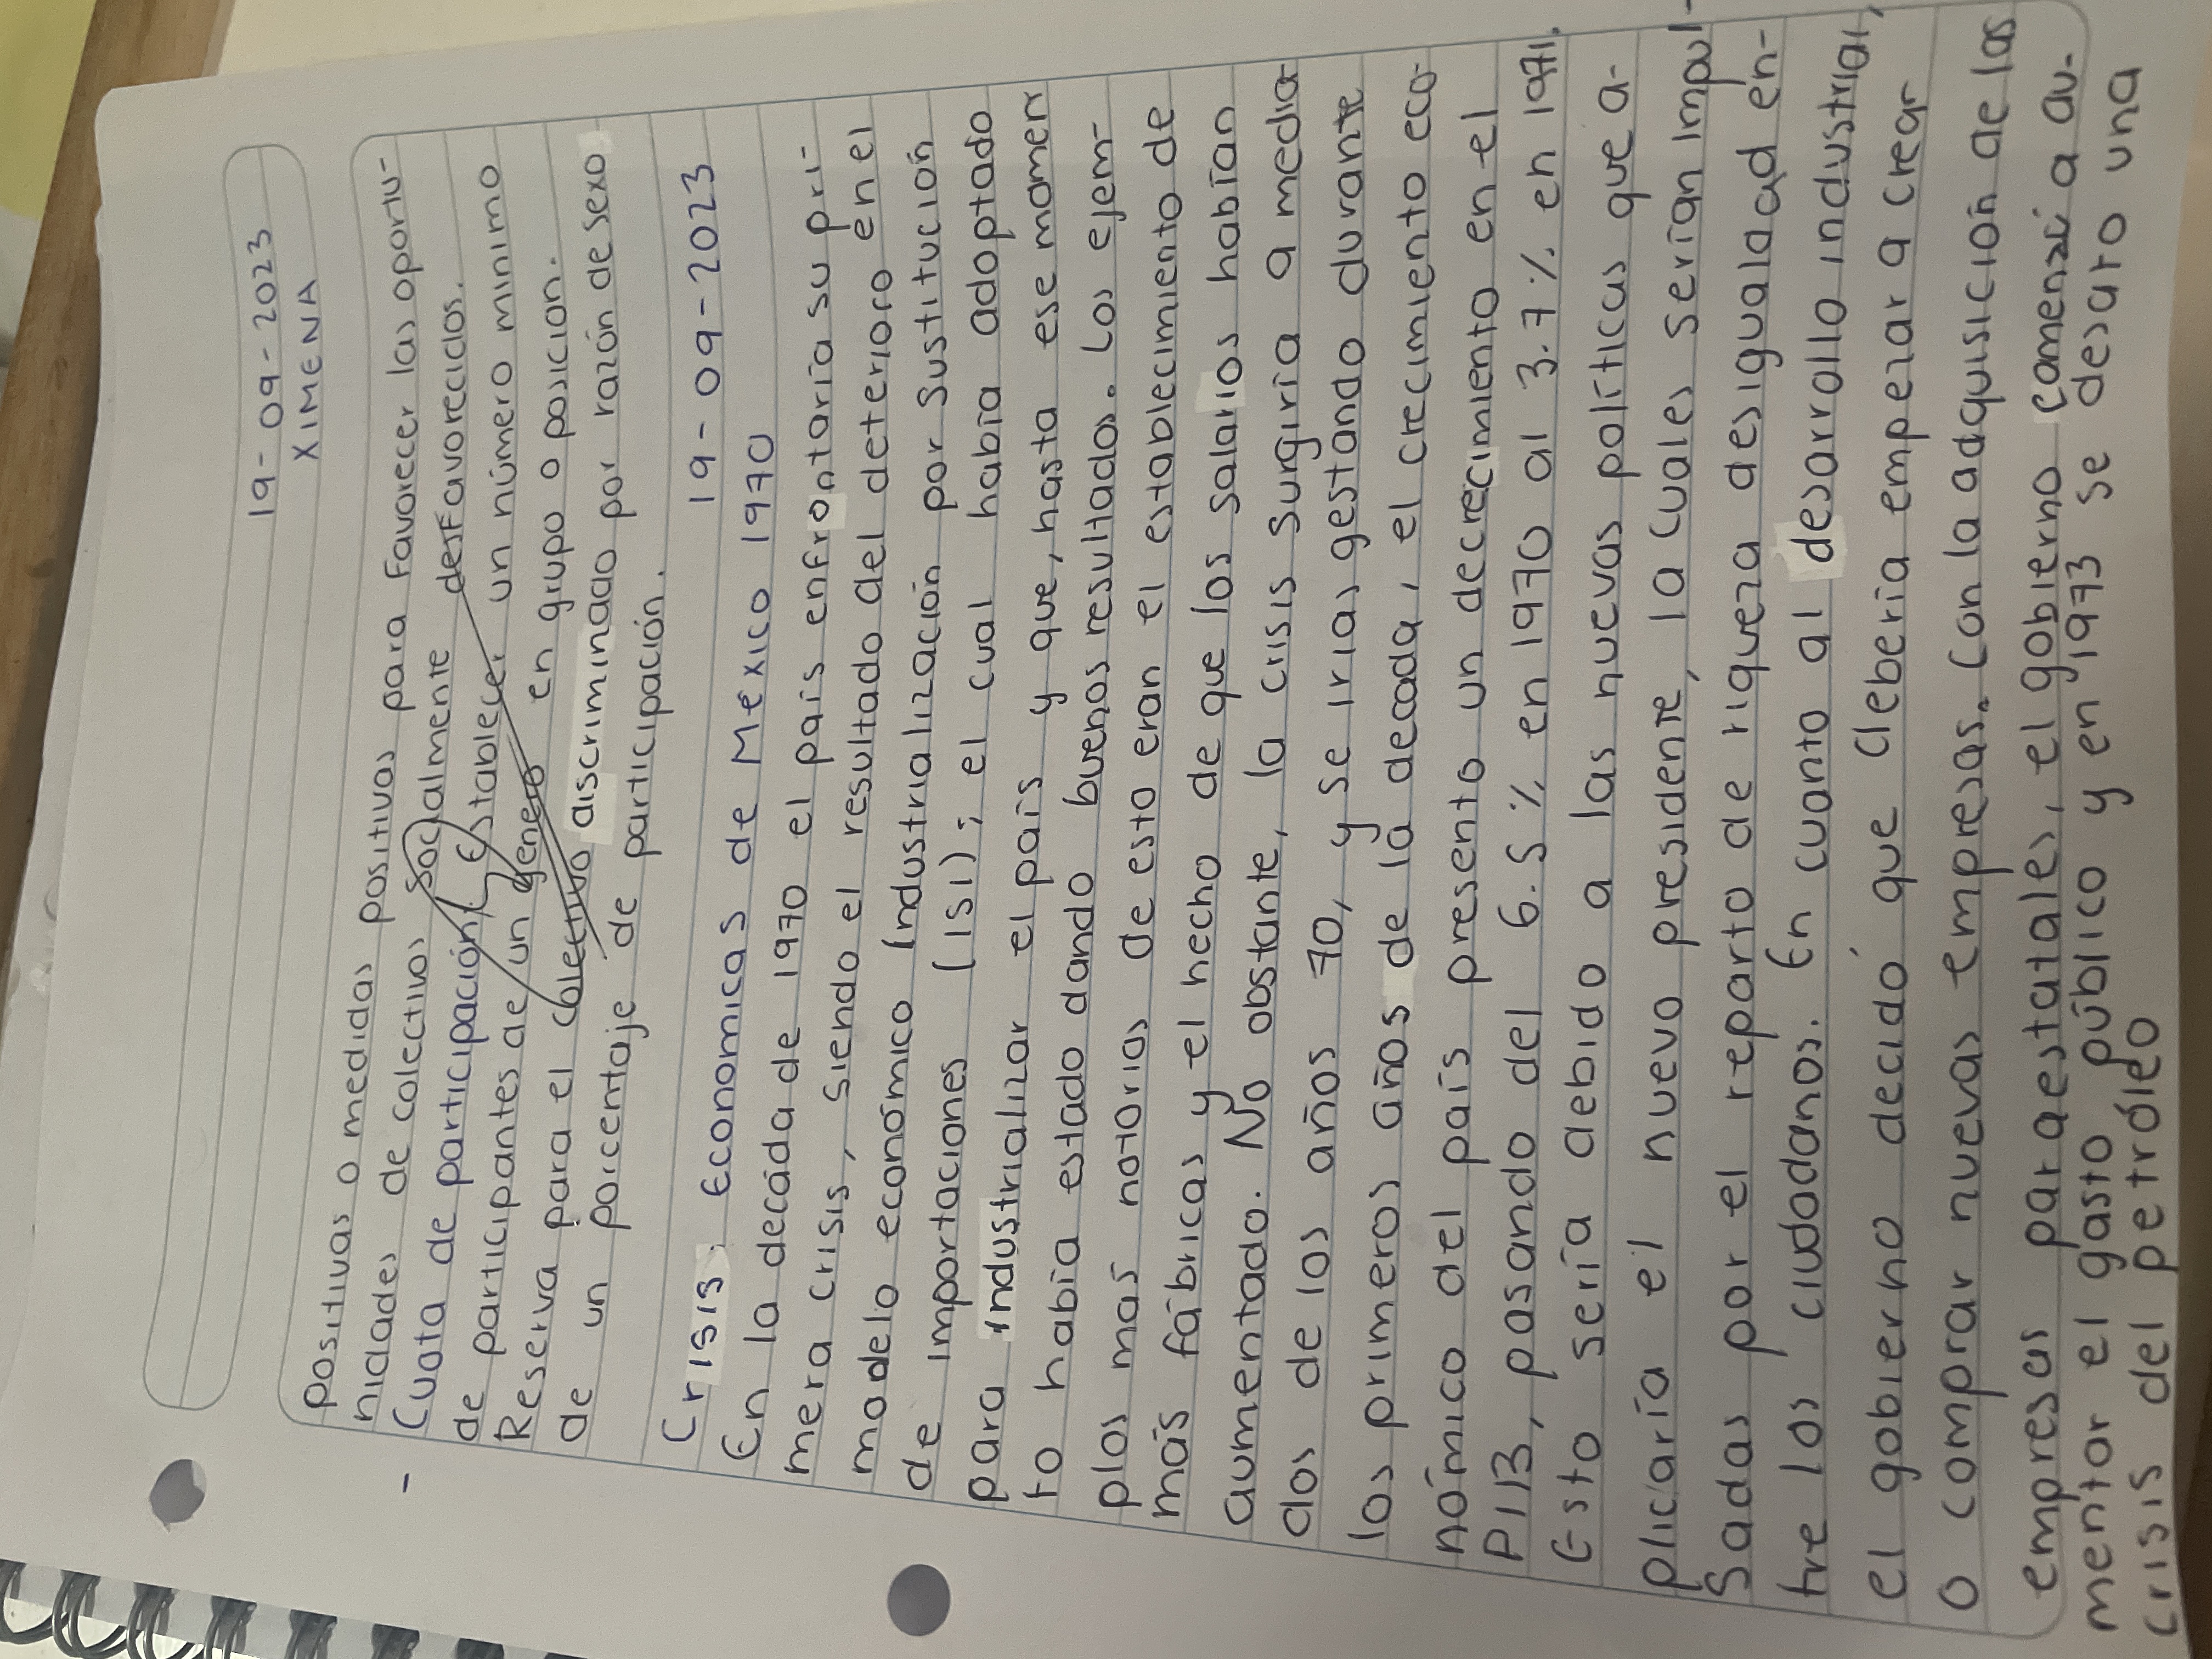 19-09-2023
XIMENA
positivas o medidas positivas para favorecer las oportu-
nidades de colectivos socialmente desfavorecidos.
- Cuota de participación: Establecer un número minimo
de participantes de un genero en grupo o posicion.
Reserva para el colectivo discriminado por razón de sexo
de un porcentaje de participación.
19-09-2023
Crisis Economicas de México 1970
En la decáda de 1970 el país enfrontaría su pri-
mera crisis, siendo el resultado del deterioro en el
modelo económico Industrialización por Sustitución
de importaciones (ISI); el cual había adoptado
para industrializar el país y que, hasta ese momen
to había estado dando buenos resultados. Los ejem-
plos mas notorios de esto eran el establecimiento de
más fábricas y el hecho de que los salarios habían
aumentado. No obstante, la crisis surgiría a media-
dos de los años 70, y se irias gestando durante
los primeros años de la decada, el crecimiento eco-
nómico del país presento un decrecimiento en el
PIB, pasando del 6.5% en 1970 al 3.7% en 1971.
Esto sería debido a las nuevas políticas que a-
plicaría el nuevo presidente, la cuales serían impul-
sadas por el reparto de riqueza desigualdad en-
tre los ciudadanos. En cuanto al desarrollo industrial,
el gobierno decidó que debería empezar a crear
o comprar nuevas empresas. Con la adquisición de las
empresas paraestatales, el gobierno comenzí a au-
mentar el gasto público y en 1973 se desato una
crisis del petróleo